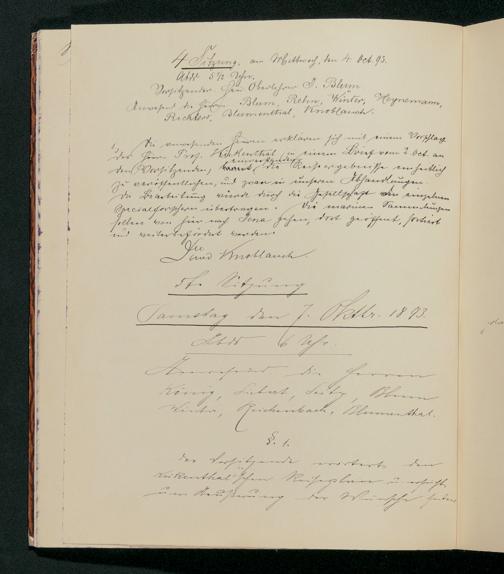 4 Sitzung, am Mittwoch, den 4. Oct. 93.
Abds 5½ Uhr.
Vorsitzender Herr Oberlehrer J. Blum
Anwesend die Herren Blum, Rehn, Winter, Heynemann,
Richters, Blumenthal, Knoblauch.
1, Die anwesenden Herren erklären sich mit einem Vorschlag
des Herrn Prof. Kükenthal in einem Brief vom 2 Oct. an
den Vorsitzenden, einverstanden, die Reiseergebnisse einheitlich
zu veröffentlichen, und zwar in unseren Abhandlungen.
Die Bearbeitung würde durch die Gesellschaft den einzelnen
Specialforschern übertragen. Die marinen Sammlungen
sollen von hier nach Jena gehen, dort geöffnet, sortiert
und weiterbefördert werden.
Knoblauch.
5te Sitzung
Samstag den 7. Oktbr. 1893.
Abds 6 Uhr.
Anwesend die Herren
König, Blum
Winter, Reichenbach, Blumenthal.
§. 1.
Der Vorsitzende erörtert den
Kükenthal'schen Reiseplan u. ersucht
um Äusserung der Wünsche